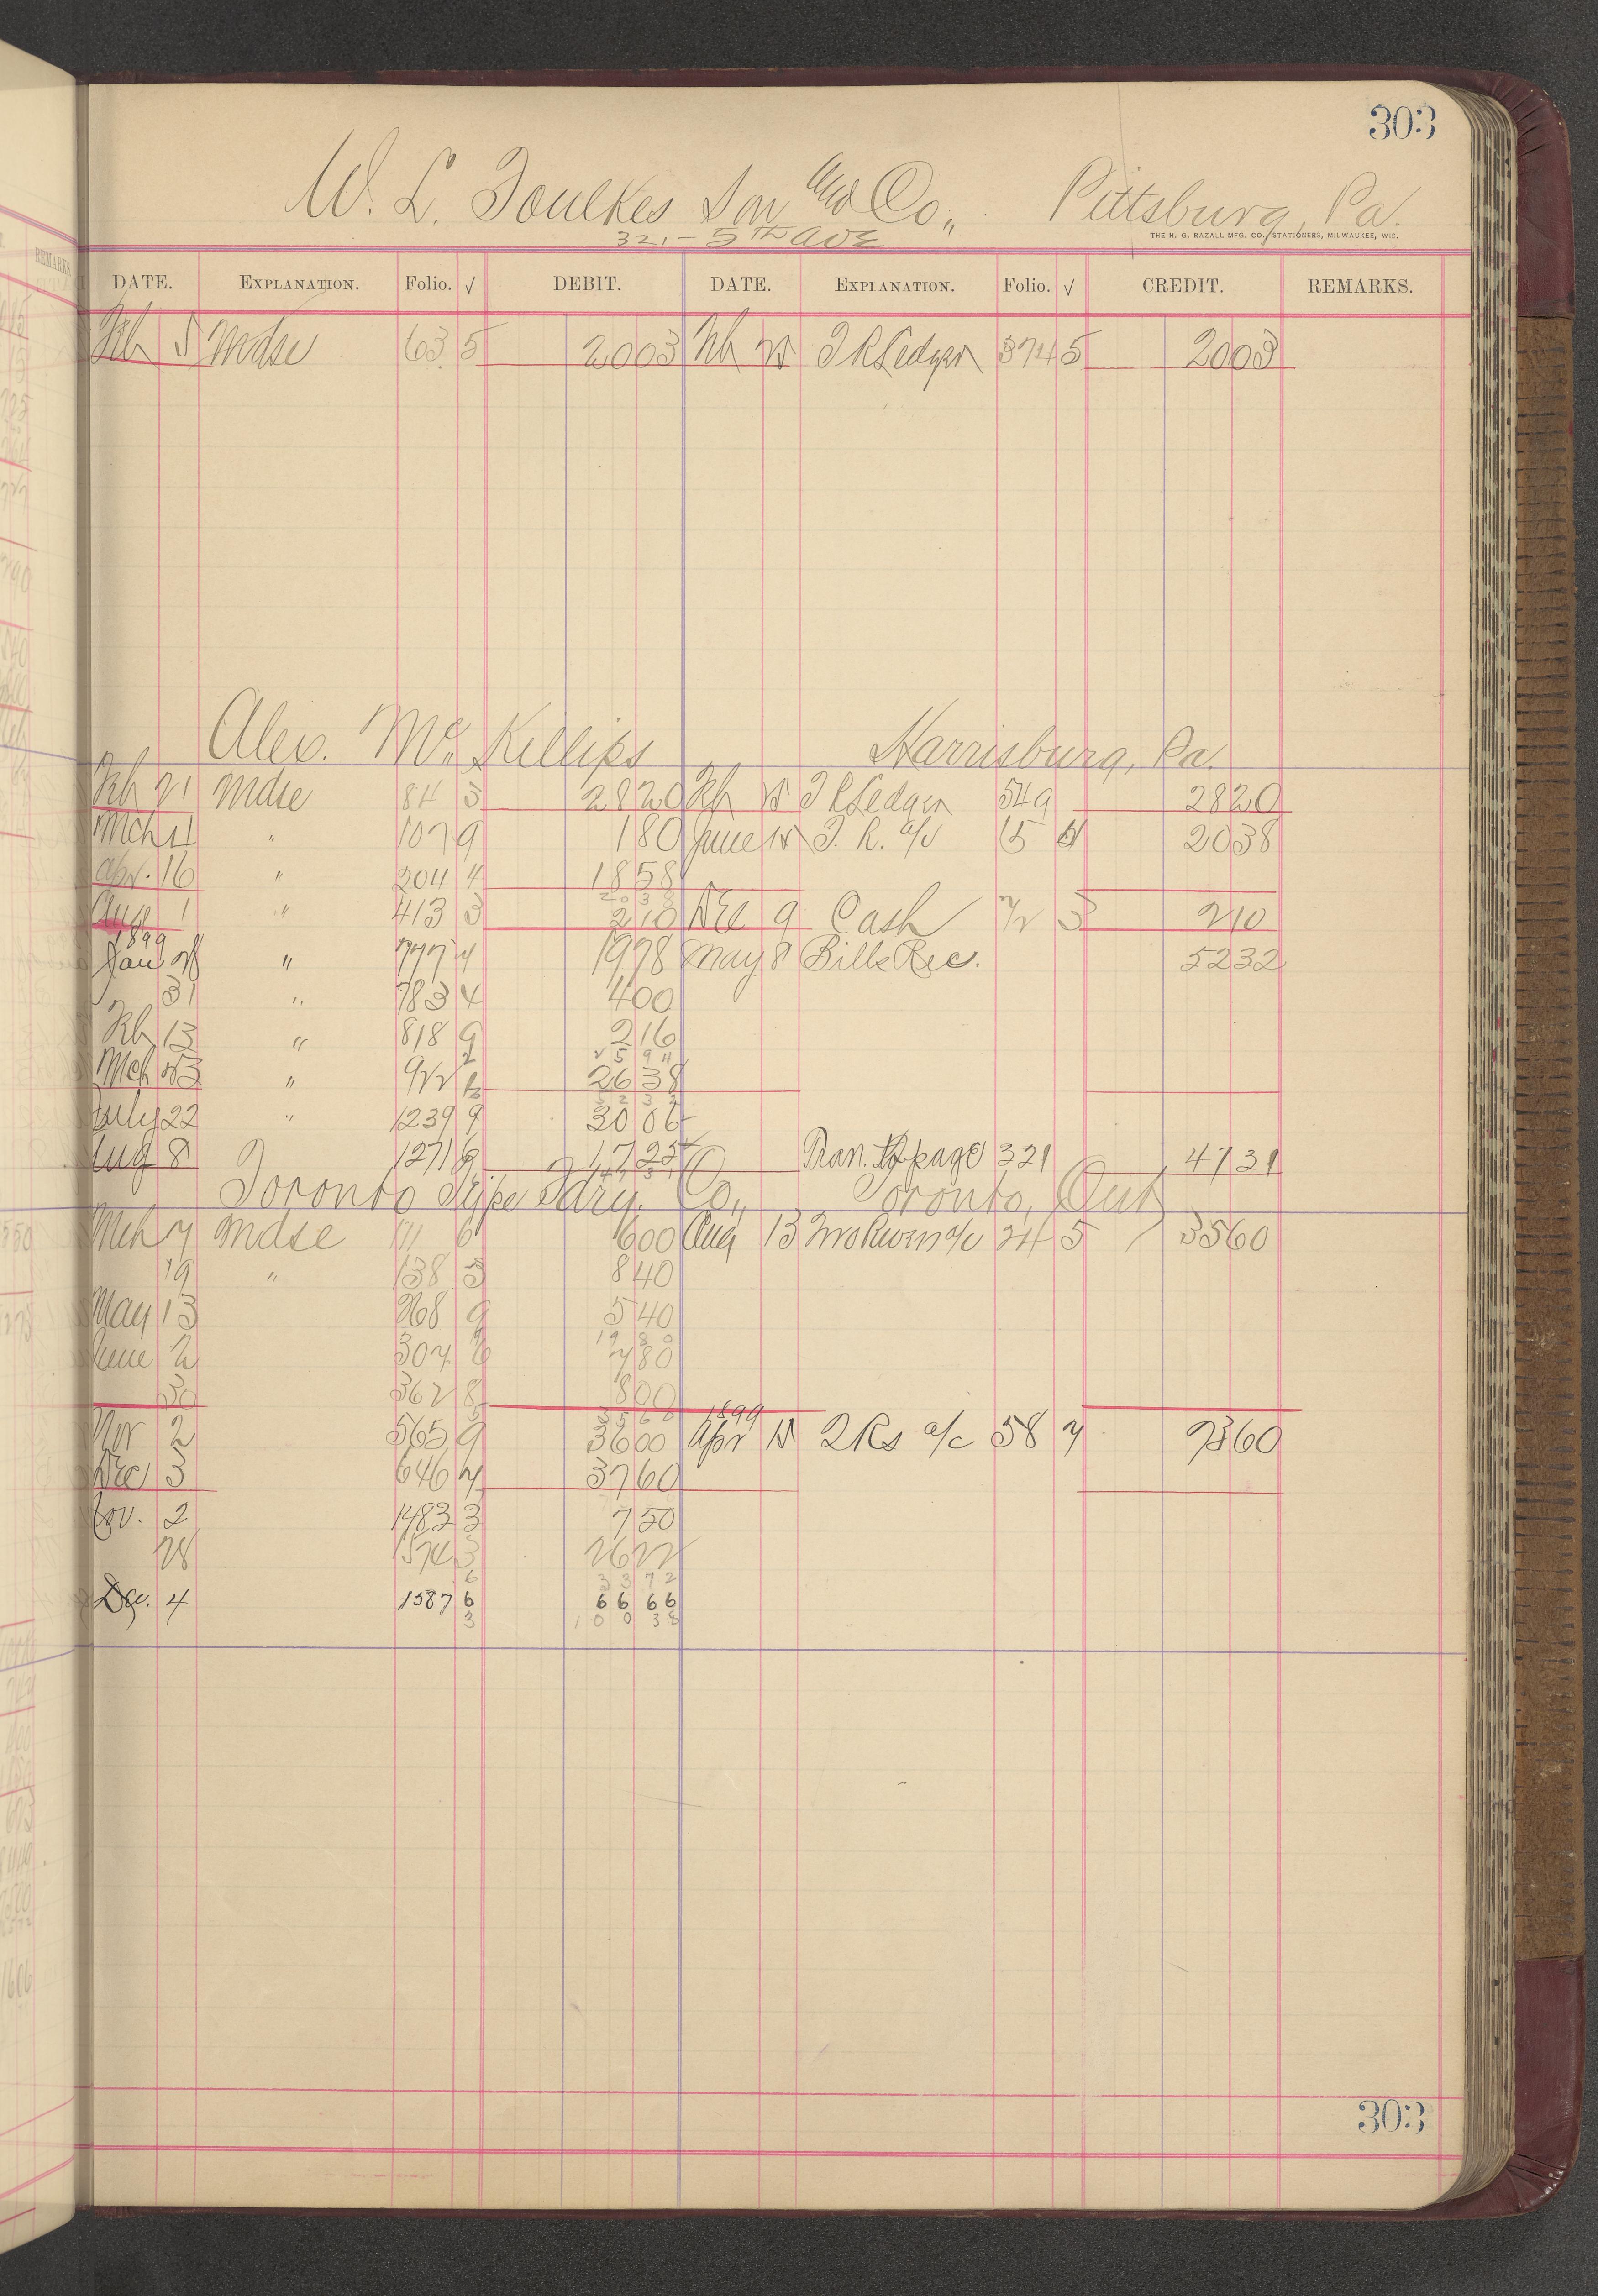 303
W. L. Foulkes Son and Co., Pittsburg, Pa.
321 - 5TH AVE
THE H. G. RAZALL MFG. CO., STATIONERS, MILWAUKEE, WIS.
DATE. EXPLANATION. Folio. √ DEBIT. DATE. EXPLANATION. Folio. √ CREDIT. REMARKS.
Feb 5 Mdse 63 5 2003 Feb T R Ledger 374 5 2003
Alex. Mc Killips Harrisburg, Pa.
Feb 21 Mdse 84 3 2820 Feb T R Ledger 549 2820
Mch 11 " 107 9 180 June T. R. a/c 15 2038
Apr. 16 " 204 4 1858
2038
Aug 1 " 413 3 210 Dec 9 Cash 3 210
1899
Jan " 777 4 1978 May 8 Bills Rec. 5232
31 " 783 4 400
Feb 13 " 818 9 216
2594
Mch " 922 2638
5232
July 22 " 1239 9 3006
Aug 8 1271 6 1725 Tran. to page 321 4731
4731
Toronto Type Fdry. Co., Toronto, Ont
Mch 7 Mdse 111 6 600 Aug 13 a/c 24 5 3560
19 " 138 3 840
May 13 268 9 540
1980
June 2 304 6 780
30 362 8 800
3560 1899
Nov 2 565 9 3600 Apr a/c 58 7 7360
Dec 3 646 7 3760
Nov. 2 1483 3 750
28 1574 3 2622
6 3372
Dec. 4 1587 6 6666
3 10038
303